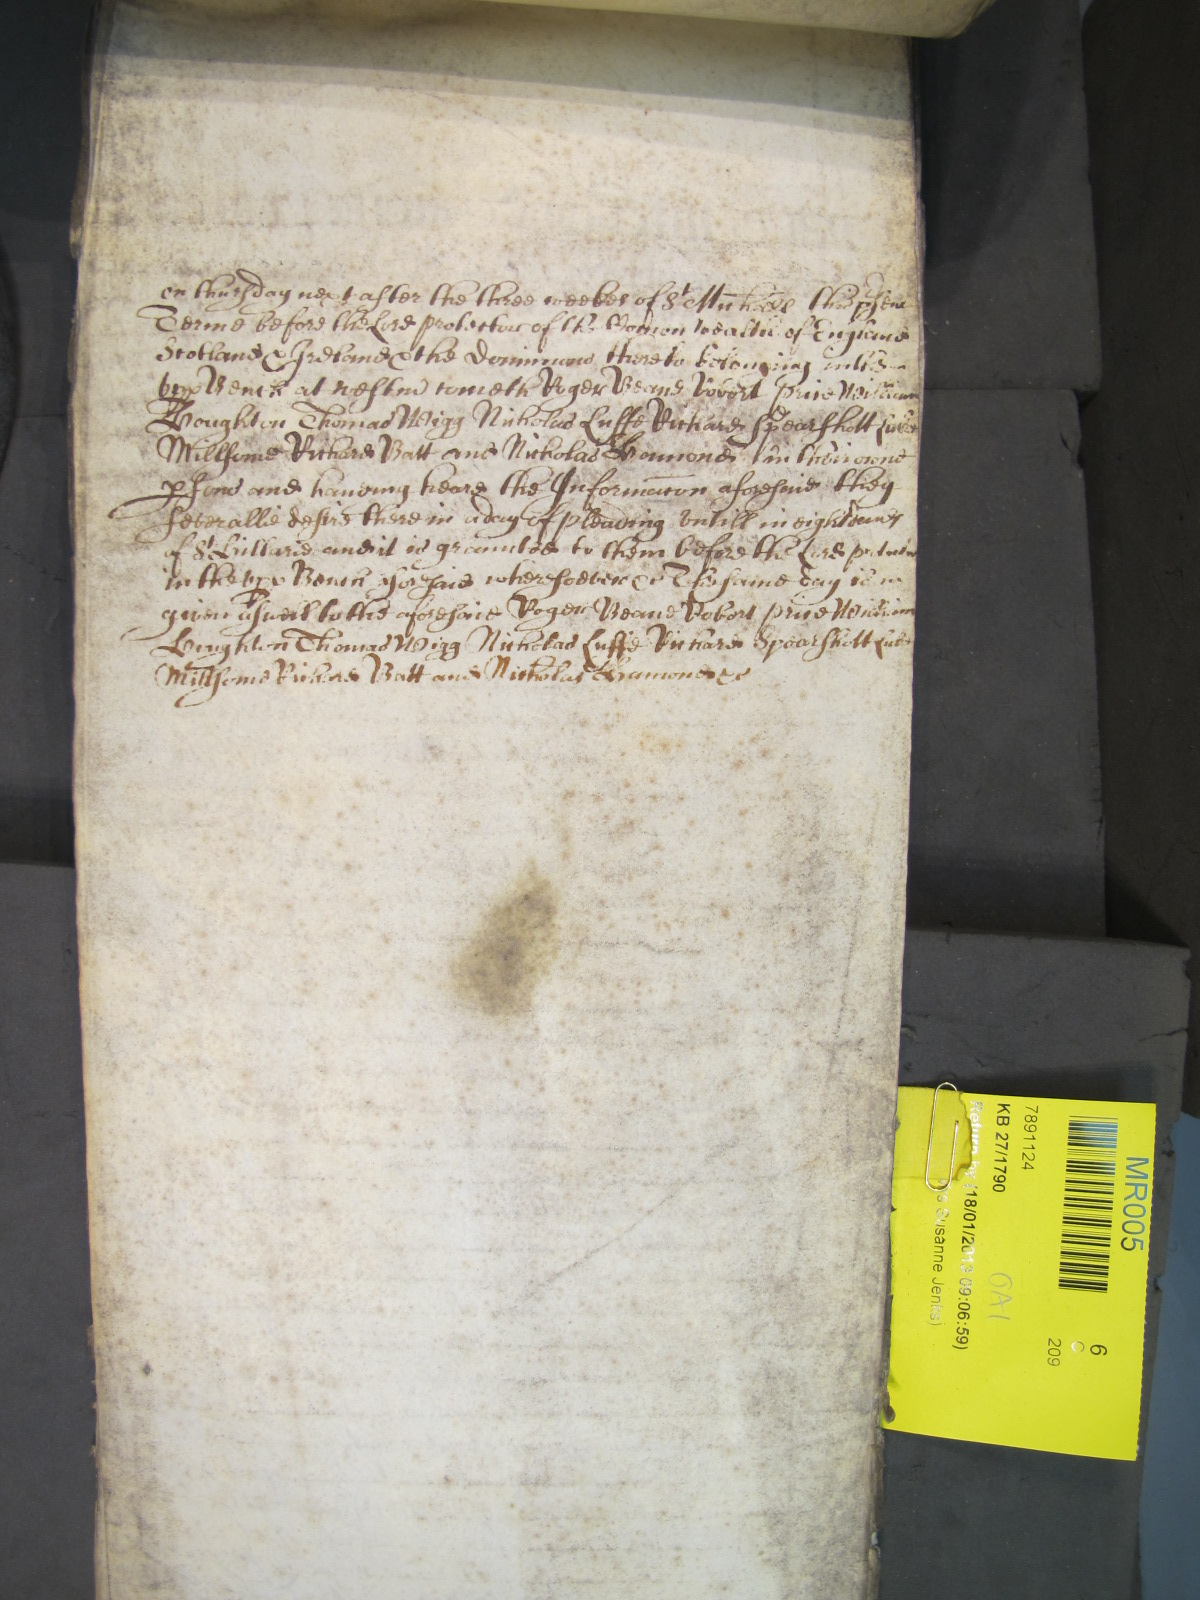 on Thursday next after the three weekes of St Michaell this psent
Terme before the Lord protector of the Comon wealth of England
Scotland & Ireland & the Dominions thereto belonging in the
upp Bench at Westmr cometh Roger Beane Robert Price William
Boughton Thomas Wigg Nicholas Luffe Richard Spearshott Luke
Millsome Richard Batt and Nicholas Hamond in their owne
psons and haveing heard the Informacon aforesaid they
severallie desire therein a day of pleading untill in eight dayes
of St Hillarie and it is graunted to them before the Lord protector
in the upp Bench aforesaid wheresoever &c The same day is
given aswell to the aforesaid Roger Beane Robert Price William
Boughton Thomas Wigg Nicholas Luffe Richard Spearshott Luke
Millsome Richard Batt and Nicholas Hamond &c
MR005
6
C
209
7891124
KB 27/1790
OA1
Return by (18/01/2013 09:06:59)
Susanne Jenks)